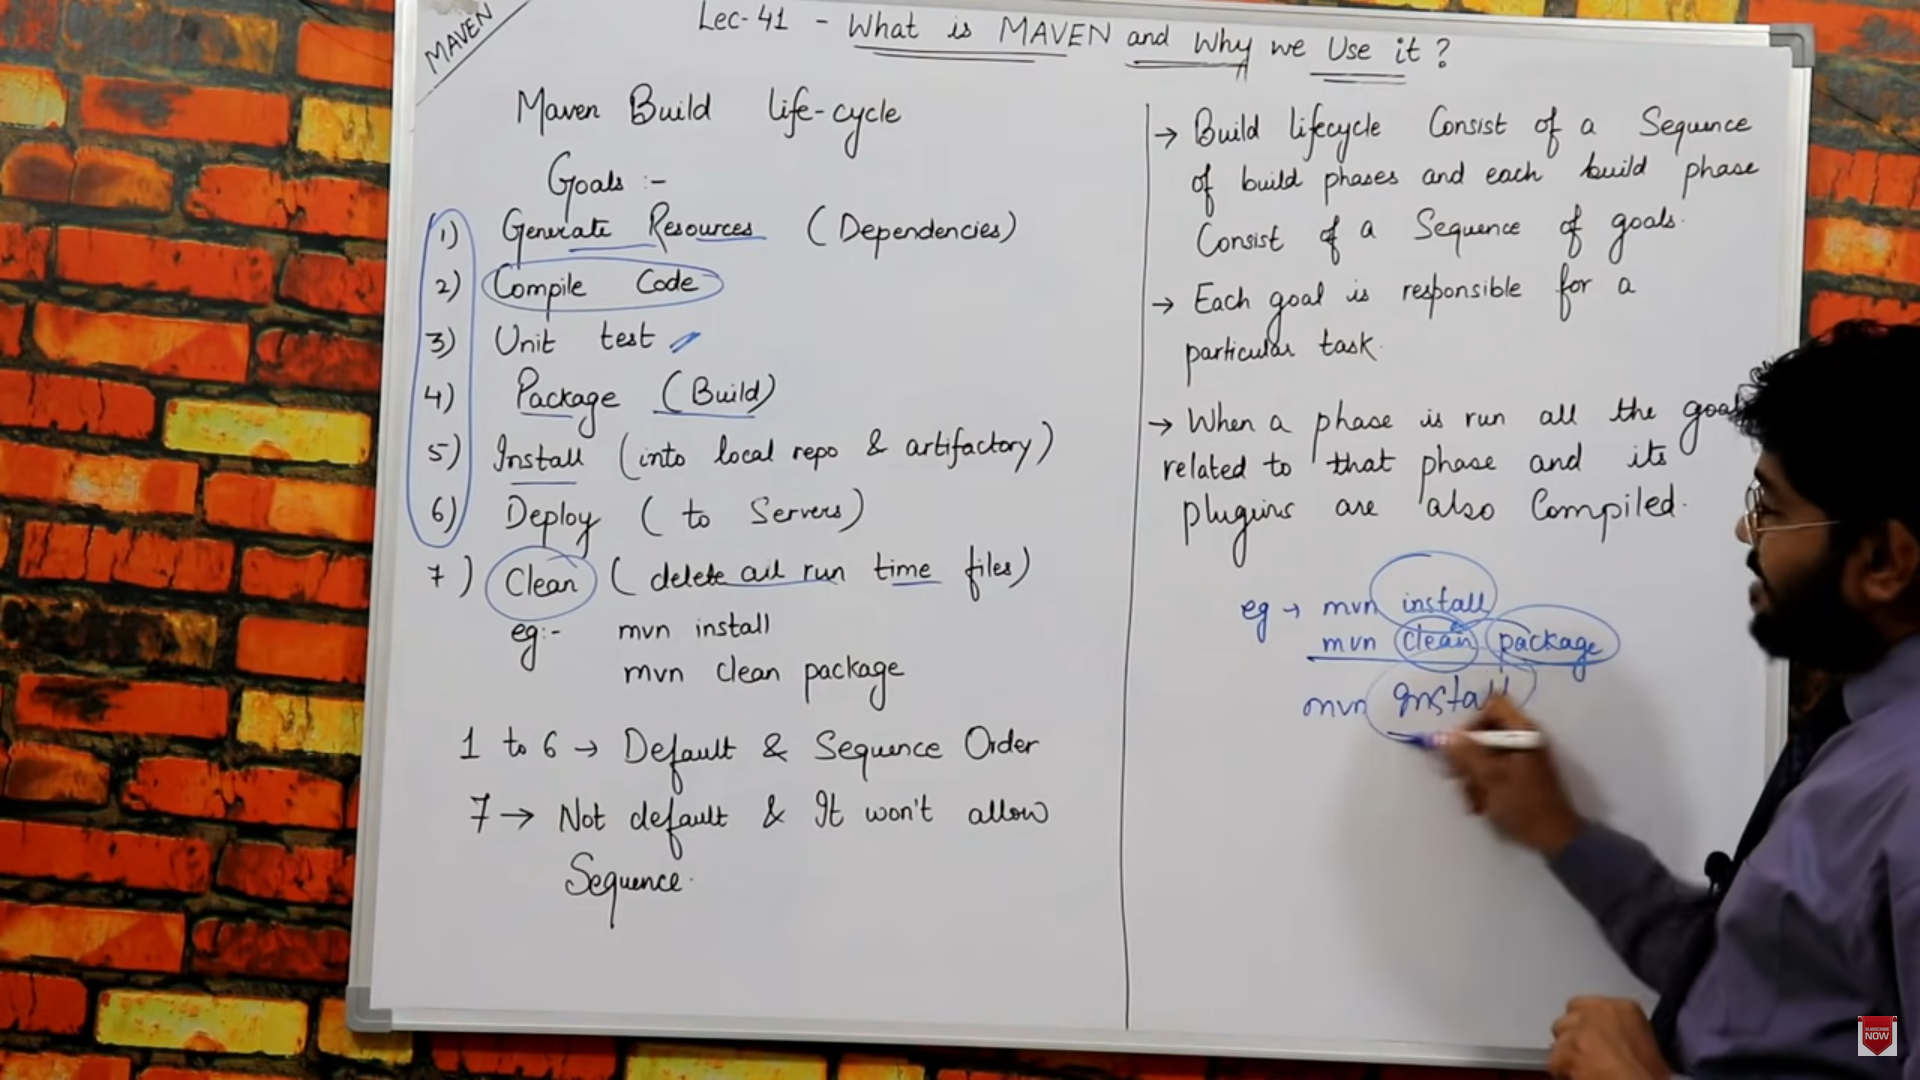 MAVEN
Lec-41 - What is MAVEN and Why we Use it?
Maven Build life-cycle
Goals :-
1) Generate Resources (Dependencies)
2) Compile Code
3) Unit test
4) Package (Build)
5) Install (into local repo & artifactory)
6) Deploy (to Servers)
7) Clean (delete all run time files)
eg:- mvn install
mvn clean package
1 to 6 → Default & Sequence Order
7 → Not default & It won't allow
Sequence.
→ Build lifecycle Consist of a Sequence
of build phases and each build phase
Consist of a Sequence of goals.
→ Each goal is responsible for a
particular task.
→ When a phase is run all the goal
related to that phase and its
plugins are also Compiled.
eg → mvn install
mvn clean package
mvn install
SUBSCRIBE
NOW